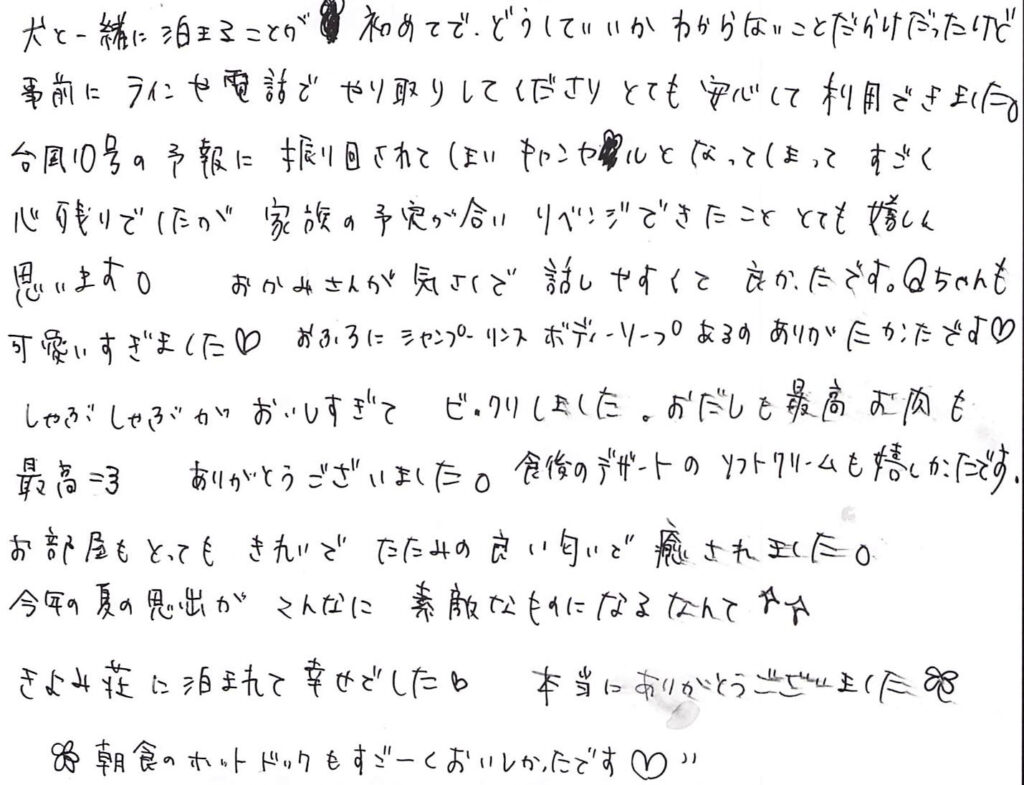 犬と一緒に泊まることが初めてで、どうしていいかわからないことだらけだったけど
事前にラインや電話でやり取りしてくださりとても安心して利用できました。
台風10号の予報に振り回されてしまいキャンセルとなってしまってすごく
心残りでしたが 家族の予定が合いリベンジできたこととても嬉しく
思います。 おかみさんが気さくで話しやすくて良かったです。Qちゃんも
可愛いすぎました♡ おふろにシャンプーリンスボディーソープあるのありがたかったです♡
しゃぶしゃぶがおいしすぎてビックリしました。おだしも最高お肉も
最高=3 ありがとうございました。食後のデザートのソフトクリームも嬉しかったです。
お部屋もとってもきれいでたたみの良い匂いで癒されました。
今年の夏の思出がこんなに素敵なものになるなんて☆☆
きよみ荘に泊まれて幸せでした♭ 本当にありがとうございました
朝食のホットドックもすごーくおいしかったです♡